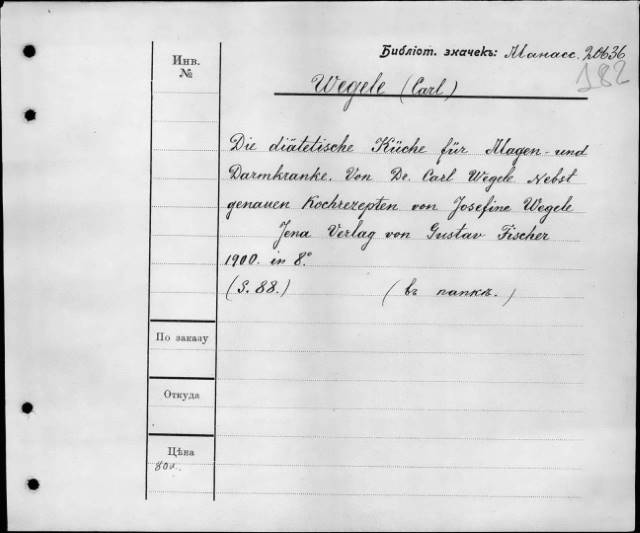 Библіот. значекъ: Манасс. 20636
182
Инв.
№
Wegele (Carl)
Die diätetische Küche für Magen- und
Darmkranke. Von Dr. Carl Wegele Nebst
genauen Kochrezepten von Josefine Wegele
Jena Verlag von Gustav Fischer
1900. in 8.°
(S. 88.) (въ папкѣ.)
По заказу
Откуда
Цѣна